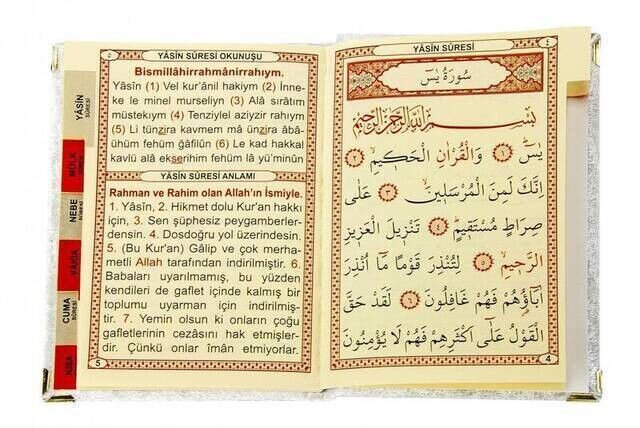 ٥
YÂSİN SÛRESİ OKUNUŞU
Bismillâhirrahmânirrahıym.
Yâsîn (1) Vel kur'ânil hakiym (2) İnne-
ke le minel murseliyn (3) Alâ sırâtim
müstekıym (4) Tenziylel aziyzir rahıym
(5) Li tünzira kavmem mâ ünzira âbâ-
ühüm fehüm ğafilûn (6) Le kad hakkal
kavlü alâ ekserihim fehüm lâ yü'minûn
YÂSİN SÛRESİ ANLAMI
Rahman ve Rahim olan Allah'ın İsmiyle.
1. Yâsîn, 2. Hikmet dolu Kur'an hakkı
için, 3. Sen şüphesiz peygamberler-
densin. 4. Dosdoğru yol üzerindesin.
5. (Bu Kur'an) Gâlip ve çok merha-
metli Allah tarafından indirilmiştir. 6.
Babaları uyarılmamış, bu yüzden
kendileri de gaflet içinde kalmış bir
toplumu uyarman için indirilmiş-
tir. 7. Yemin olsun ki onların çoğu
gafletlerinin cezasını hak etmişler-
dir. Çünkü onlar îmân etmiyorlar.
5
YÂSİN SÛRESİ
MÜLK SÛRESİ
NEBE SÛRESİ
VÂKIA
CUMA SÛRESİ
KISA
YÂSİN SÛRESİ
٤
سُورَةُ يٰسٓ
بِسْمِ اللّٰهِ الرَّحْمٰنِ الرَّحِيمِ
يٰسٓ ﴿١﴾ وَالْقُرْاٰنِ الْحَكِيمِ ﴿٢﴾
اِنَّكَ لَمِنَ الْمُرْسَلِينَ ﴿٣﴾ عَلٰى
صِرَاطٍ مُسْتَقِيمٍ ﴿٤﴾ تَنْزِيلَ الْعَزِيزِ
الرَّحِيمِ ﴿٥﴾ لِتُنْذِرَ قَوْمًا مَٓا اُنْذِرَ
اٰبَٓاؤُهُمْ فَهُمْ غَافِلُونَ ﴿٦﴾ لَقَدْ حَقَّ
الْقَوْلُ عَلٰٓى اَكْثَرِهِمْ فَهُمْ لَا يُؤْمِنُونَ
4